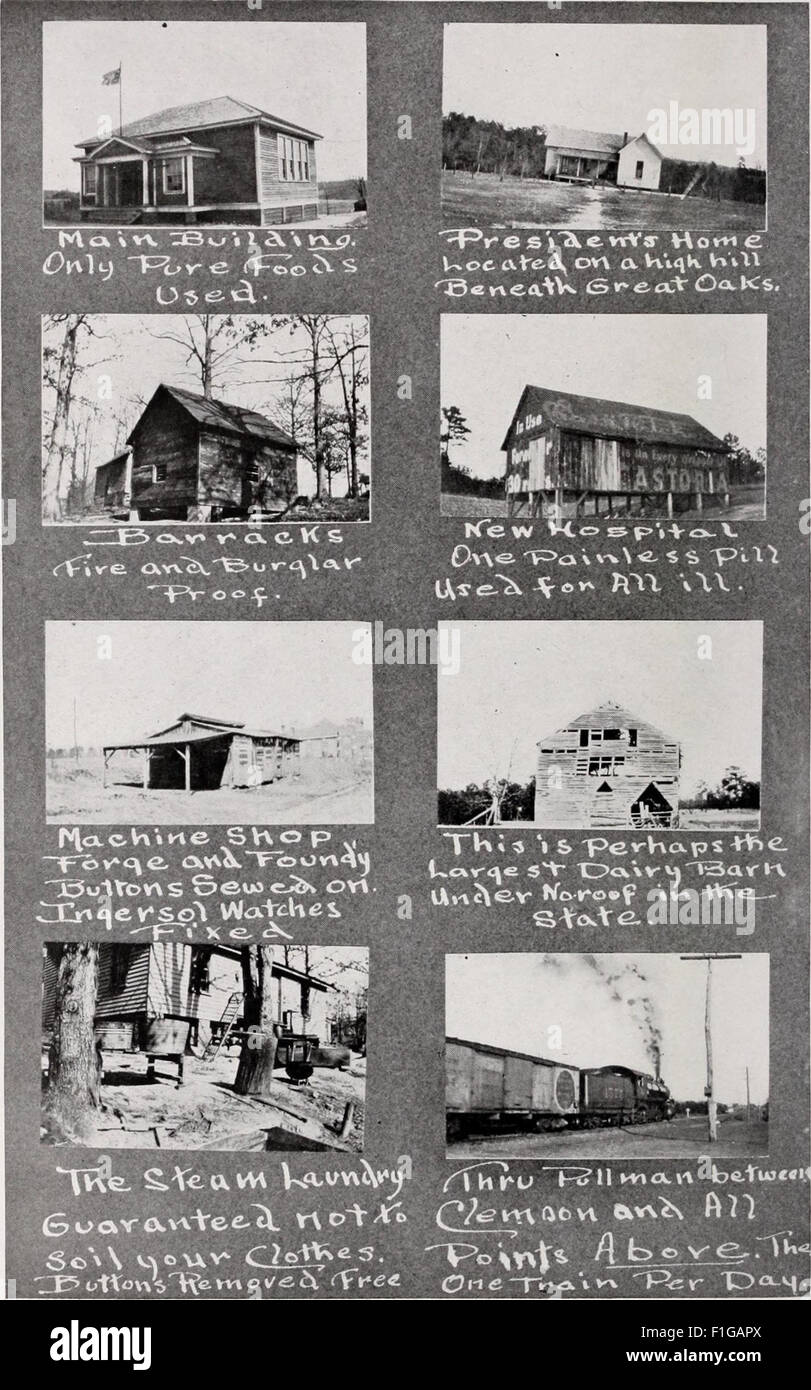 Main Building.
Only Pure Foods
Used.
President's Home
Located on a high hill
Beneath Great Oaks.
Is Use
ASTORIA
Barracks
Fire and Burglar
Proof.
New Hospital
One Painless Pill
Used for All ill.
Machine Shop,
Forge and Foundy
Buttons Sewed on.
Ingersol Watches
Fixed
This is Perhaps the
Largest Dairy Barn
Under No roof in the
State.
The Steam Laundry
Guaranteed not to
Soil your Clothes.
Buttons Removed Free
Thru Pullman between
Clemson and All
Points Above. The
One Train Per Day.
alamy stock photo
F1GAPX
www.alamy.com